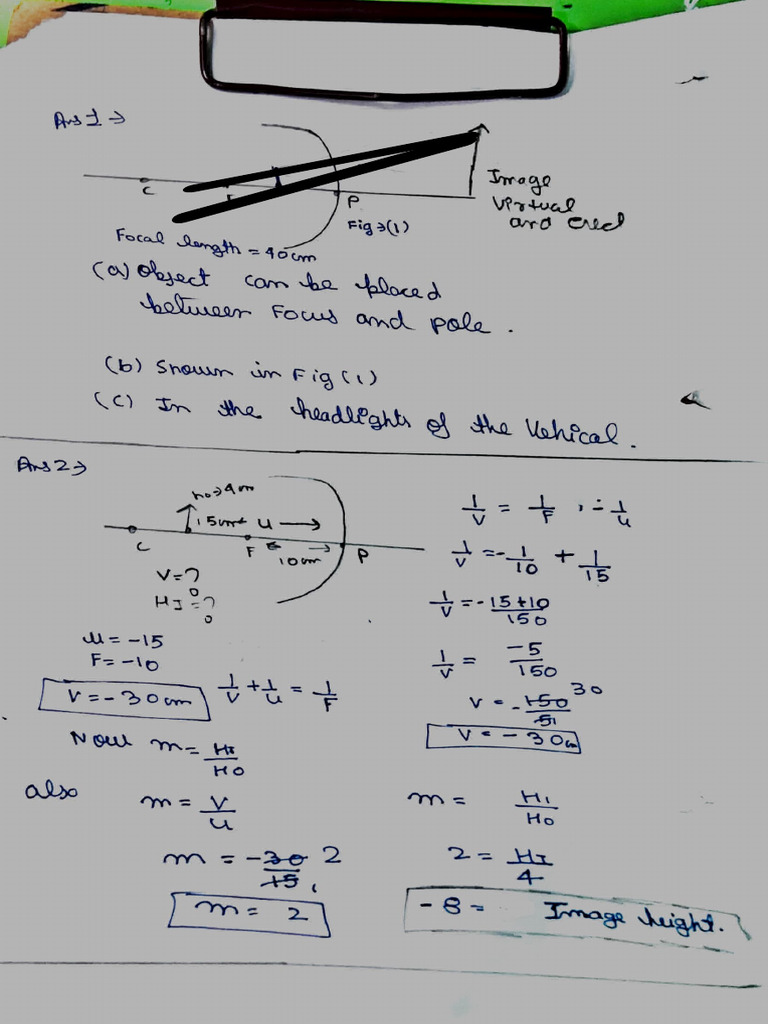 Ans 1 →
C F P
Fig → (1)
Image
Virtual
and erect
Focal length = 40 cm
(a) object can be placed
between Focus and pole.
(b) Shown in Fig (1)
(c) In the headlights of the Vehical.
Ans 2 →
ho → 4cm
15cm ← u →
C F ← 10cm → P
V = ?
HI = ?
u = -15
F = -10
V = -30cm
1/V + 1/u = 1/F
1/V = 1/F - 1/u
1/V = -1/10 + 1/15
1/V = -15+10/150
1/V = -5/150
V = -150/5 30
V = -30cm
Now m = HI/HO
also m = V/u
m = -30/15 2 1
m = 2
m = HI/HO
2 = HI/4
-8 = Image height.